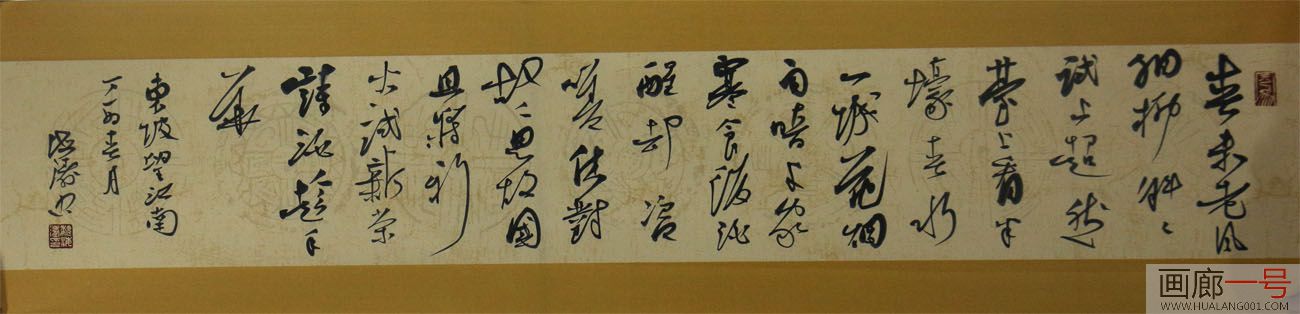 春未老风
细柳斜斜
试上超然
臺上看半
壕春水
一城花烟
雨暗千家
寒食後酒
醒却咨
嗟休對
故人思故國
且將新
火试新茶
詩酒趁年
華
東坡望江南
丁酉春月
画廊一号
WWW.HUALANG001.COM